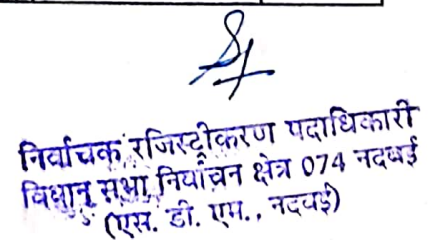 निर्वाचक रजिस्ट्रीकरण पदाधिकारी
विधान सभा निर्वाचन क्षेत्र 074 नदबई
(एस. डी. एम., नदबई)